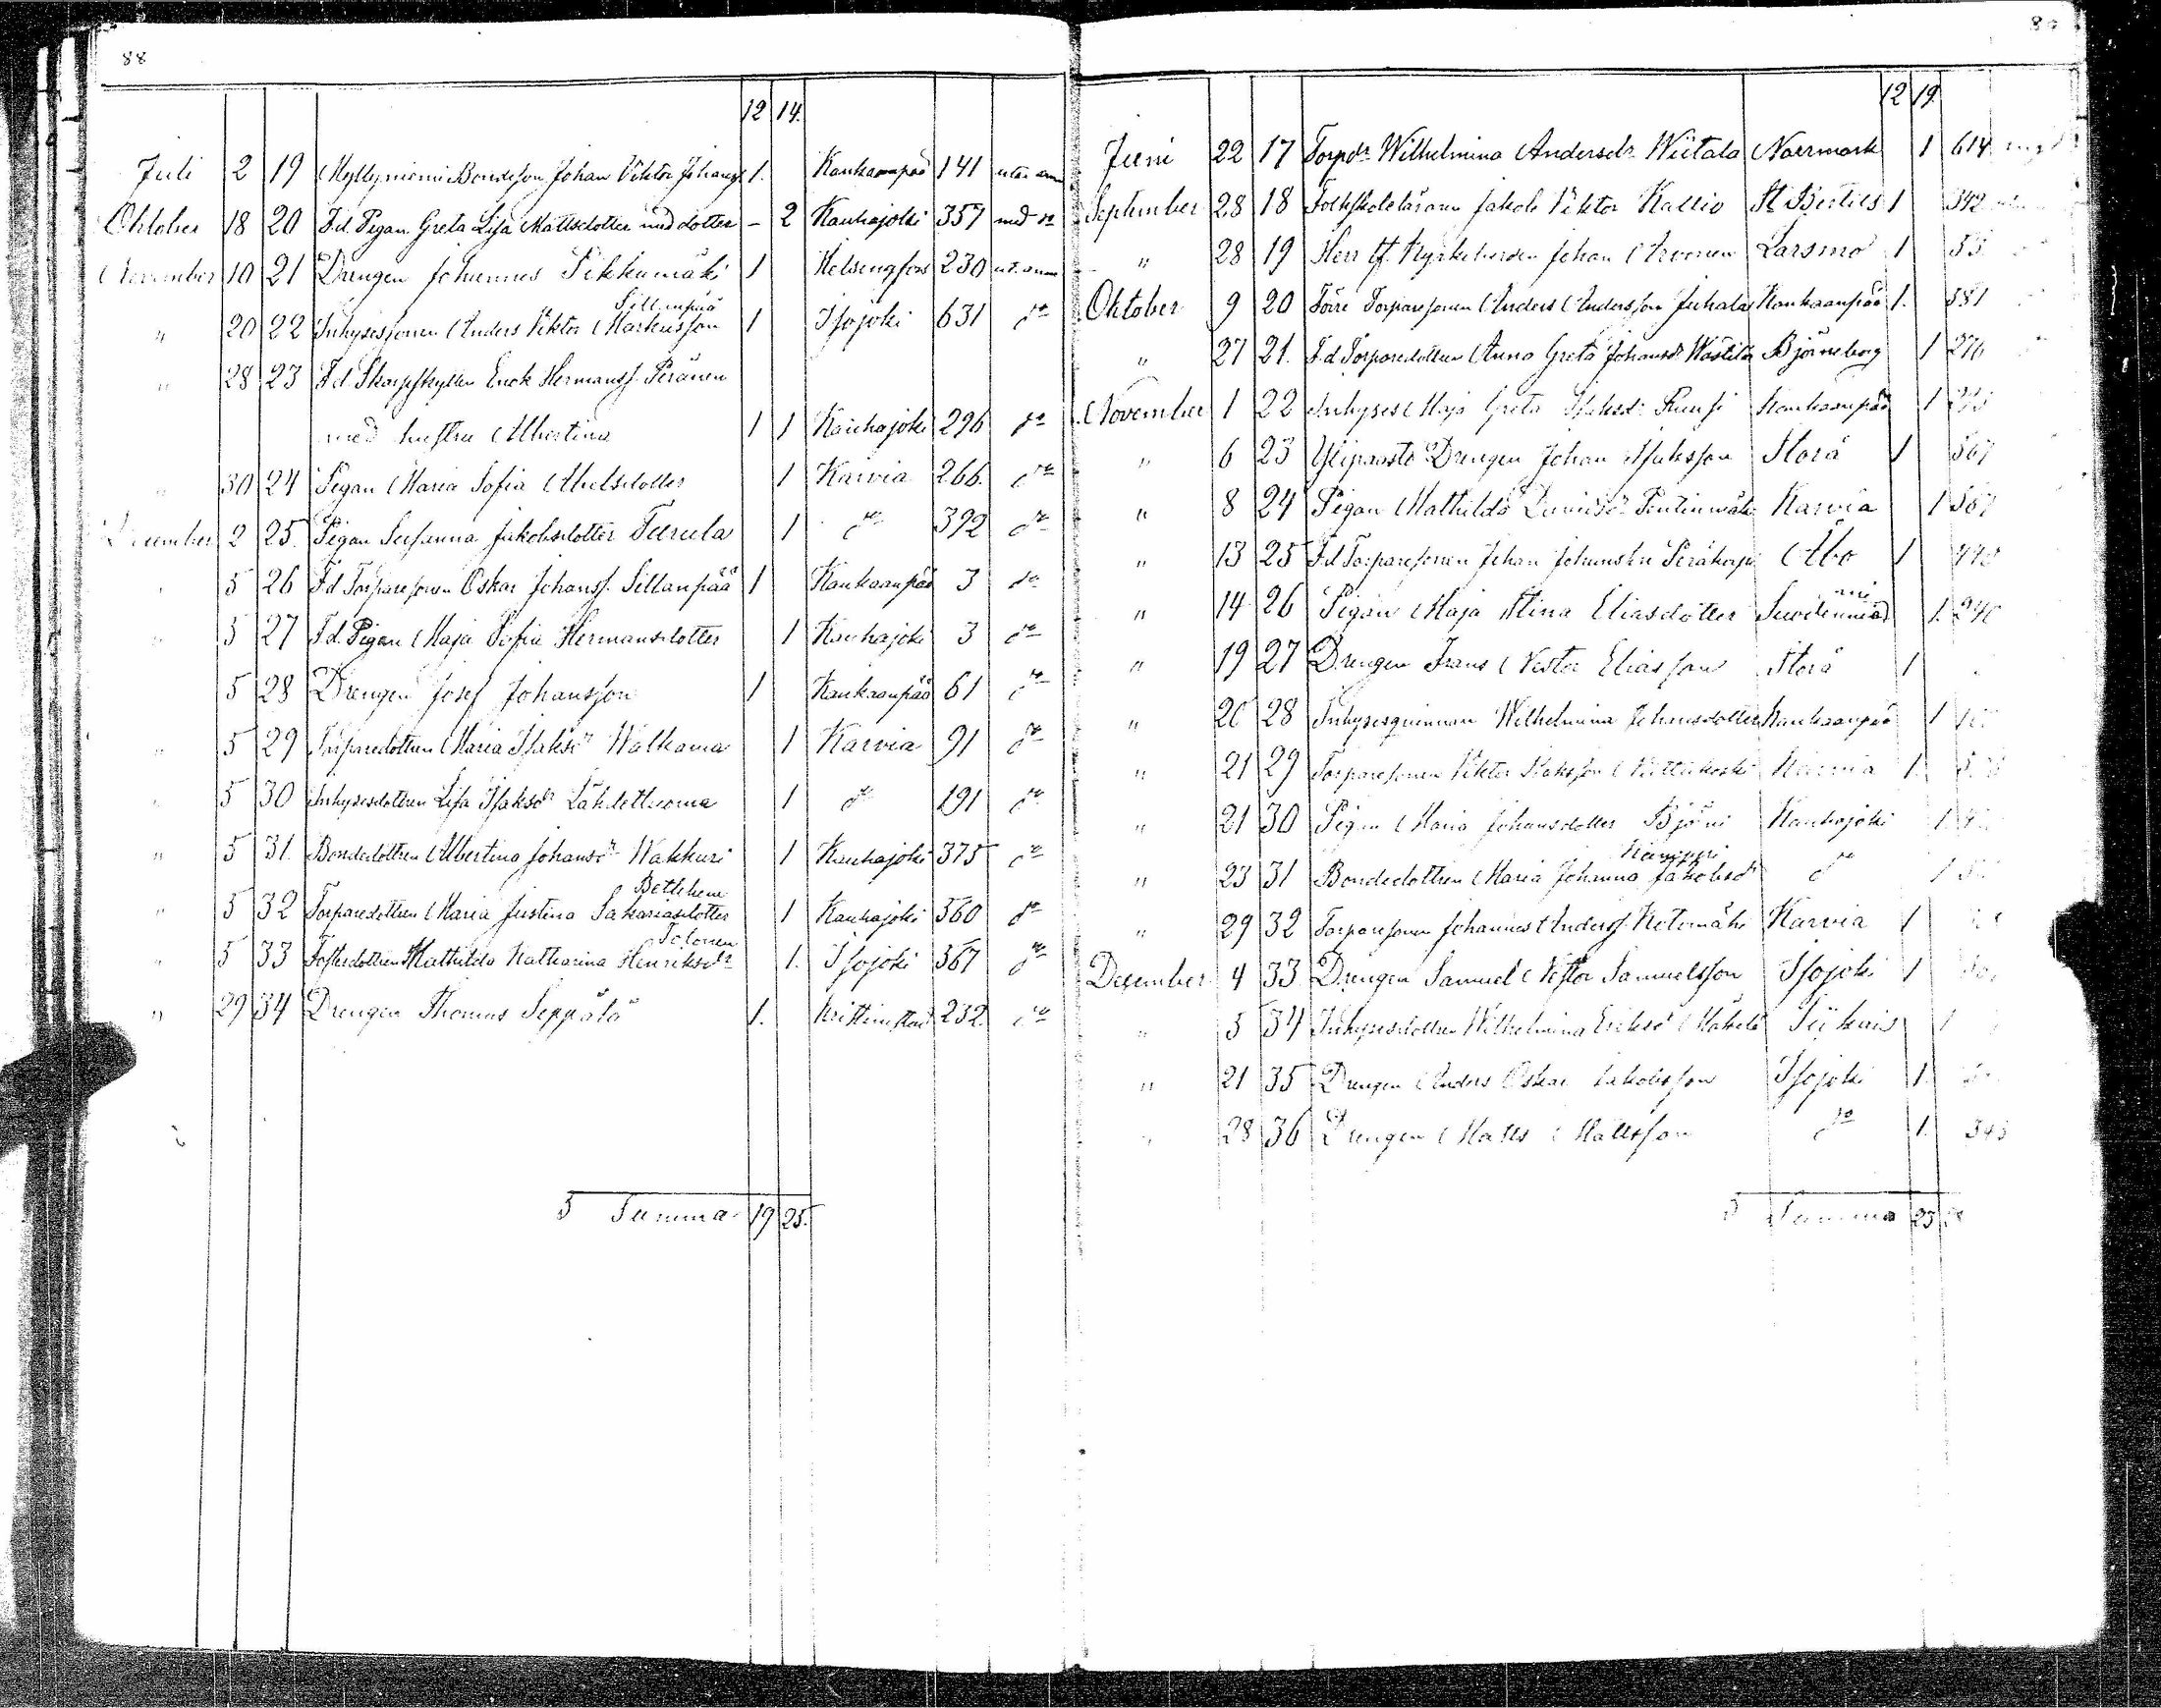 88
12 14.
Juli 2 19 Myllyniemi Bondeson Johan Viktor Johanss. 1. Kankaanpää 141 utan anm
Oktober 18 20 F.d. Pigan Greta Lisa Mattsdotter med dotter – 2 Kauhajoki 357 med
November 10 21 Drengen Johannes Pikkumäki 1 Helsingfors 230 ut. anm
Sillanpää
" 20 22 Inhysessonen Anders Viktor Markusson 1 Isojoki 631 do
" 28 23 F.d. Skarpskytten Enok Hermanss. Peränen
med hustru Albertina 1 1 Kauhajoki 296 do
" 30 24 Pigan Maria Sofia Abelsdotter 1 Karvia 266. do
December 2 25. Pigan Susanna Jakobsdotter Turula 1 do 392 do
" 5 26 F.d. Torparesonen Oskar Johanss. Sillanpää 1 Kankaanpää 3 do
" 5 27 F.d. Pigan Maja Sofia Hermansdotter 1 Kauhajoki 3 do
5 28 Drengen Josef Johansson 1 Kankaanpää 61 do
" 5 29 Torparedottren Maria Isaksdr Walkama 1 Karvia 91 do
" 5 30 Inhysesdottren Lisa Isaksdr Lähdetluoma 1 do 191 do
" 5 31. Bondedottren Albertina Johansdr Wakkuri 1 Kauhajoki 375 do
Betlehem
" 5 32 Torparedottren Maria Justina Sakariasdotter 1 Kauhajoki 360 do
Tolonen
" 5 33 Fosterdottren Mathilda Katharina Henriksdr 1. Isojoki 367 do
" 29 34 Drengen Thomas Seppälä 1. Kristinestad 232. do
5 Summa 19 25.
89
12 19.
Juni 22 17 Torpdr Wilhelmina Andersdr Wiitala Norrmark 1 614
September 28 18 Folkskoleläraren Jakob Viktor Kallio St Bertils 1 342
" 28 19 Herr tf. Kyrkoherden Johan Arvonen Larsmo 1 53
Oktober 9 20 Förre Torparesonen Anders Andersson Juhala Kankaanpää 1. 381
" 27 21. F.d. Torparedottren Anna Greta Johansdr Wästilä Björneborg 1 276
November 1 22 Inhyses Maja Greta Isaksdr Kankaanpää 1
" 6 23 Ylipaasto Drengen Johan Isaksson Storå 1 567
" 8 24 Pigan Mathilda Davidsdr Karvia 1 567
" 13 25 F.d. Torparesonen Johan Johansson Peräkorpi Åbo 1
" 14 26 Pigan Maja Stina Eliasdotter 1.
" 19 27 Drengen Frans Nestor Eliasson Storå 1
" 20 28 Inhysesqvinnan Wilhelmina Johansdotter Kankaanpää 1
" 21 29 Torparesonen Viktor Isaksson Karvia 1.
" 21 30 Pigan Maria Johansdotter Björni Kauhajoki 1
" 23 31 Bondedottren Maria Johanna Jakobsdr do 1
" 29 32 Torparesonen Johannes Anderss. Karvia 1
December 4 33 Drengen Samuel Nestor Samuelsson Isojoki 1
" 5 34 Inhysesdottren Wilhelmina Eriksdr Mäkelä Siikais 1
" 21 35 Drengen Anders Oskar Jakobsson Isojoki 1.
" 28 36 Drengen Matts Mattsson do 1. 345
Summa 23